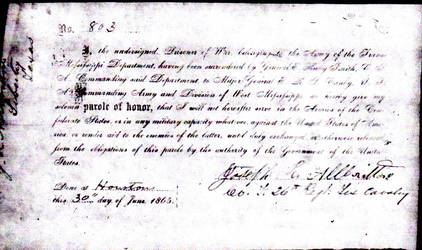 No. 803
I, the undersigned, Prisoner of War, belonging to the Army of the Trans-
Mississippi Department, having been surrendered by General E. Kirby Smith, C. S.
A., Commanding said Department, to Major General E. R. S. Canby, U. S.
A., Commanding Army and Division of West Mississippi, do hereby give my
solemn parole of honor, that I will not hereafter serve in the Armies of the Con-
federate States, or in any military capacity whatever, against the United States of Ame-
rica, or render aid to the enemies of the latter, until duly exchanged, or otherwise released
from the obligations of this parole by the authority of the Government of the United
States.
Joseph Allbritton
Co. 26th Regt Tex Cavalry
Done at Houston
this 30th day of June 1865.
Texas